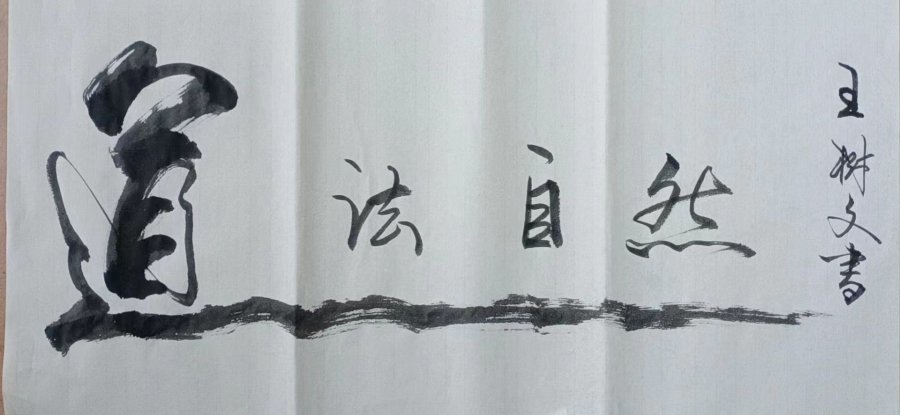 道法自然
王树文书